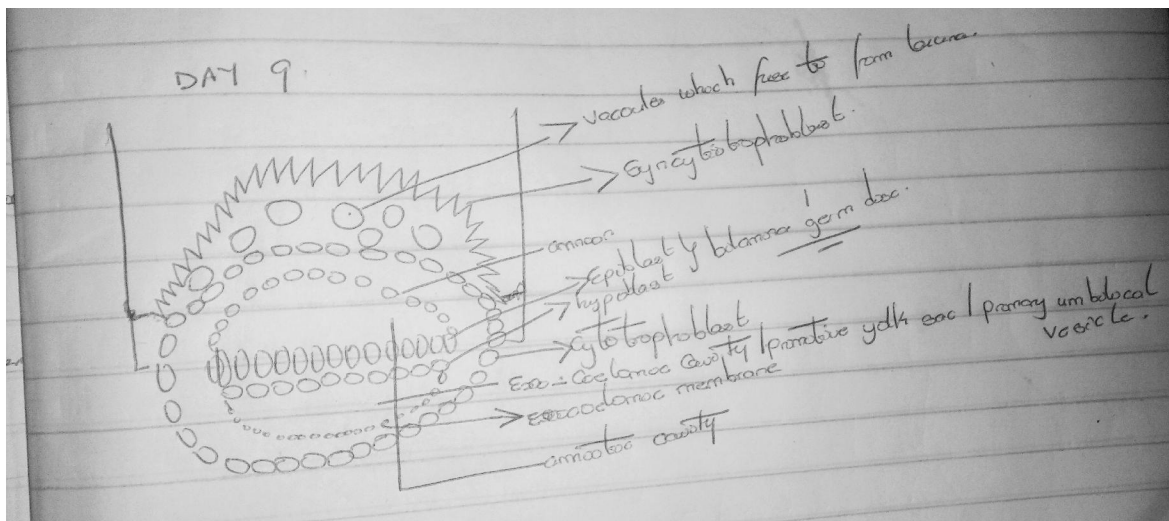 DAY 9
vacuoles which fuse to form lacuna.
Syncytiotrophoblast.
amnion
Epiblast } bilaminar germ disc.
hypoblast
Cytotrophoblast
Exo-Coelomic Cavity / primitive yolk sac / primary umbilical
vesicle.
membrane
amniotic cavity